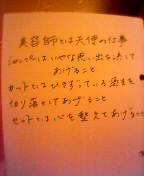 美容師とは天使の仕事
シャンプーはいやな思い出を流して
あげること
カートとはひきずっている過去を
切り落としてあげること
セットとは心を整えてあげること